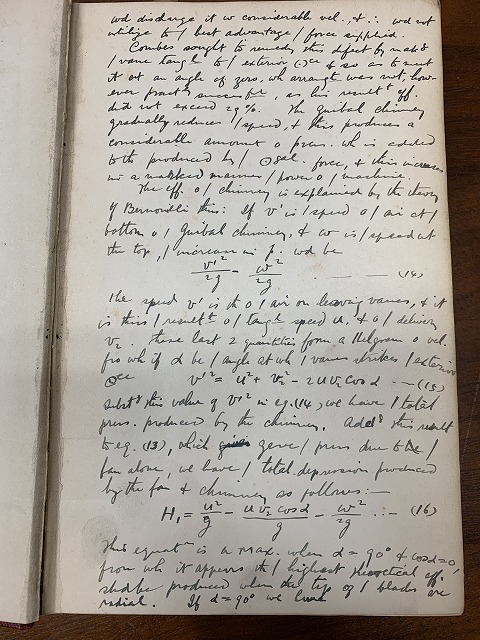 wd discharge it w considerable vel. & ∴ wd not
utilize to / best advantage / force supplied.
Combes sought to remedy this defect by makg
/ vane tangl to / exterior ⊙ce & so as to meet
it at an angle of zero, wh arrangt was not, how-
ever practy successful, as his resultt eff.
did not exceed 29%. The Guibal chimney
gradually reduces / speed, & this produces a
considerable amount o pres. wh is added
to tht produced by / ⊙gal. force, & this increases
in a marked manner / power o / machine.
The eff. o / chimney is explained by the theory
of Bernoulli thus: If v' is / speed o / air at /
bottom o / Guibal chimney, & w is / speed at
the top, / increase in p. wd be
v'²/2g - w²/2g . — — — (14)
The speed v' is tht o / air on leaving vanes, & it
is thus / resultt o / tangl speed u, & o / delivery
v₂. These last 2 quantities form a ||elgram o vel.
fro wh if α be / angle at wh / vanes strikes / exterior
⊙ce v'² = u² + v₂² - 2uv₂ cos α -- (15)
substg this value of v'² in eq. (14) we have / total
pres. produced by the chimney. Addg this result
to eq. (13), which gives gave / pres due to the /
fan alone, we have / total depression produced
by the fan & chimney as follows:—
H₁ = u²/g - u v₂ cos α/g - w²/2g .. - (16)
This equatn is a max. when α = 90° & cos α = 0,
from wh it appears tht / highest theoretical eff.
shd be produced when the tips of / blades are
radial. If α = 90° we have